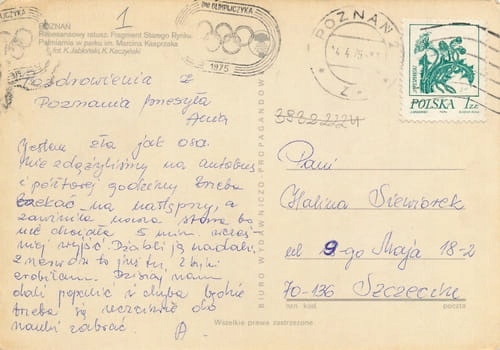 POZNAŃ
Renesansowy ratusz. Fragment Starego Rynku.
Palmiarnia w parku im. Marcina Kasprzaka
fot. K. Jabłoński, K. Kaczyński
1
OLIMPIJCZYKA
1975
POZNAŃ 2
POLSKA 1 ZŁ
Pozdrowienia z
Poznania przesyła
Anna
Jestem zła jak osa.
Nie zdążyliśmy na autobus
i półtorej godziny trzeba
czekać na następny, a
zawiniła nasza stara bo
nie chciała 5 min. wcześ
niej wyjść. Diabli ją nadali
z nerwów to jeść tu
zrobiłam. Dzisiaj nam
dali popalić i chyba będzie
trzeba się uczciwie do
nauki zabrać.
A
BIURO WYDAWNICZO-PROPAGANDOWE
Pani
Halina Siewiorek
ul 9-go Maja 18-2
70-136 Szczecin
nr kod poczta
Wszelkie prawa zastrzeżone